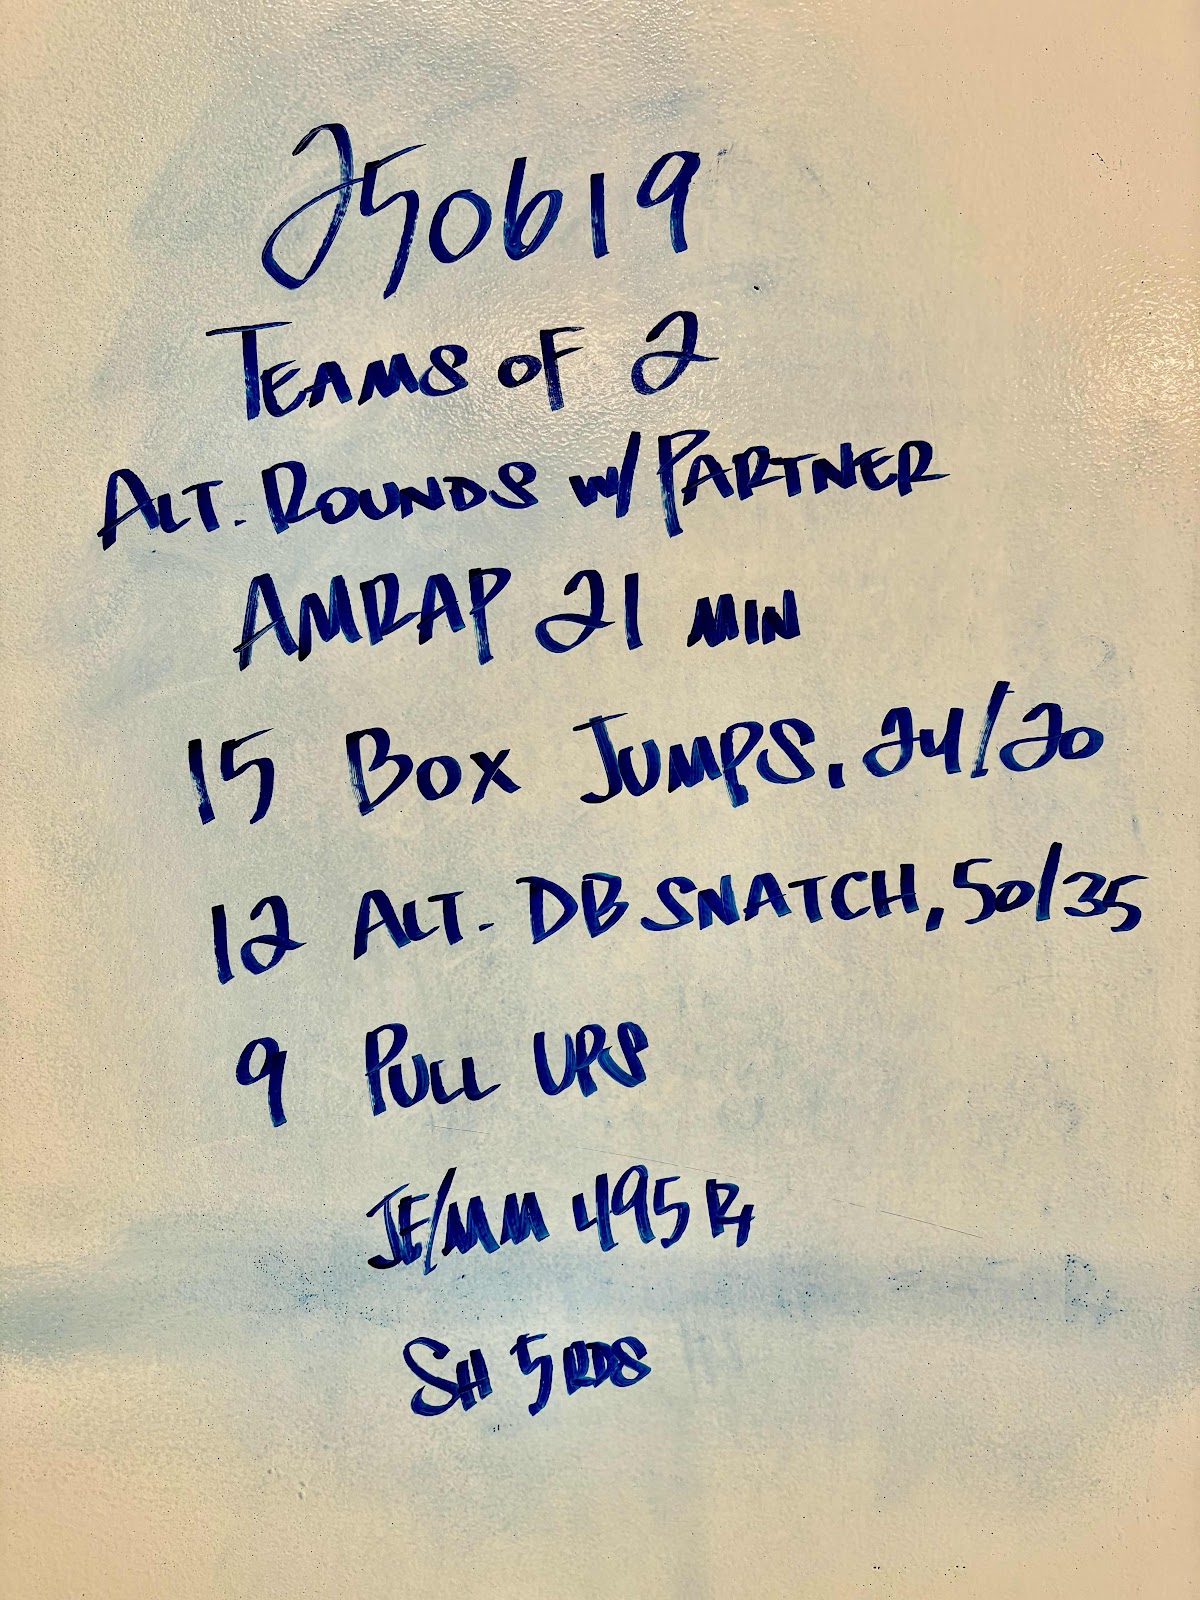 250619
TEAMS OF 2
ALT. ROUNDS W/ PARTNER
AMRAP 21 MIN
15 BOX JUMPS, 24/20
12 ALT. DB SNATCH, 50/35
9 PULL UPS
JE/MM 495 Rx
SH 5 RDS